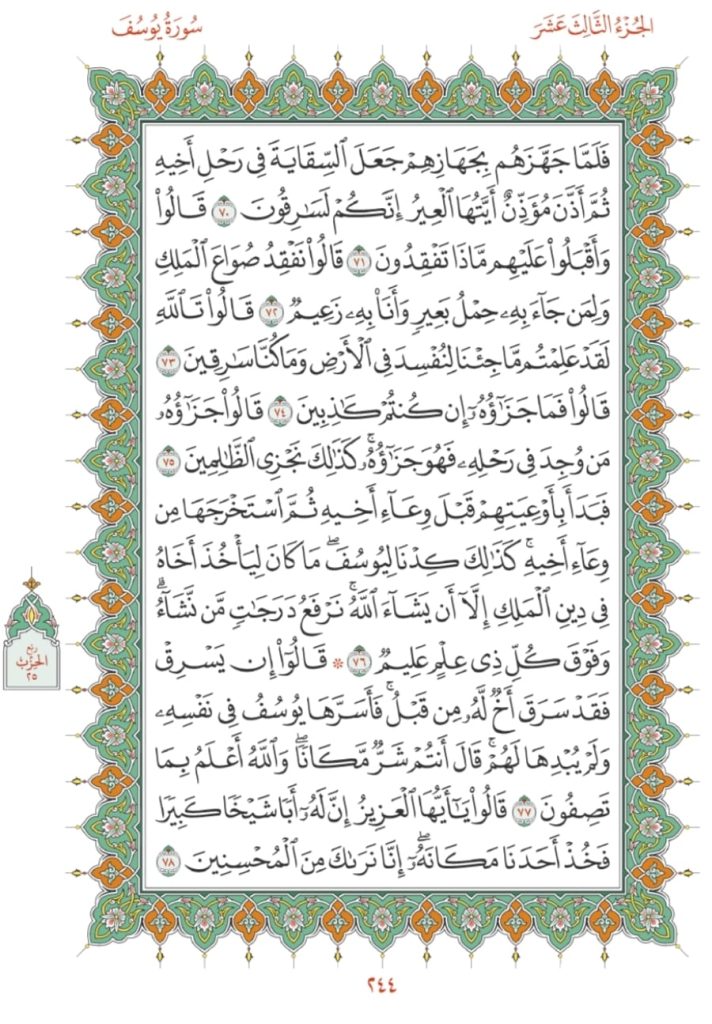 الجُزْءُ الثَّالِثَ عَشَرَ
سُورَةُ يُوسُفَ
فَلَمَّا جَهَّزَهُم بِجَهَازِهِمْ جَعَلَ ٱلسِّقَايَةَ فِى رَحْلِ أَخِيهِ
ثُمَّ أَذَّنَ مُؤَذِّنٌ أَيَّتُهَا ٱلْعِيرُ إِنَّكُمْ لَسَـٰرِقُونَ ٧٠ قَالُوا۟
وَأَقْبَلُوا۟ عَلَيْهِم مَّاذَا تَفْقِدُونَ ٧١ قَالُوا۟ نَفْقِدُ صُوَاعَ ٱلْمَلِكِ
وَلِمَن جَآءَ بِهِۦ حِمْلُ بَعِيرٍ وَأَنَا۠ بِهِۦ زَعِيمٌ ٧٢ قَالُوا۟ تَٱللَّهِ
لَقَدْ عَلِمْتُم مَّا جِئْنَا لِنُفْسِدَ فِى ٱلْأَرْضِ وَمَا كُنَّا سَـٰرِقِينَ ٧٣
قَالُوا۟ فَمَا جَزَٰٓؤُهُۥٓ إِن كُنتُمْ كَـٰذِبِينَ ٧٤ قَالُوا۟ جَزَٰٓؤُهُۥ
مَن وُجِدَ فِى رَحْلِهِۦ فَهُوَ جَزَٰٓؤُهُۥۚ كَذَٰلِكَ نَجْزِى ٱلظَّـٰلِمِينَ ٧٥
فَبَدَأَ بِأَوْعِيَتِهِمْ قَبْلَ وِعَآءِ أَخِيهِ ثُمَّ ٱسْتَخْرَجَهَا مِن
وِعَآءِ أَخِيهِۚ كَذَٰلِكَ كِدْنَا لِيُوسُفَۖ مَا كَانَ لِيَأْخُذَ أَخَاهُ
فِى دِينِ ٱلْمَلِكِ إِلَّآ أَن يَشَآءَ ٱللَّهُۚ نَرْفَعُ دَرَجَـٰتٍ مَّن نَّشَآءُۗ
وَفَوْقَ كُلِّ ذِى عِلْمٍ عَلِيمٌ ٧٦ ۞ قَالُوٓا۟ إِن يَسْرِقْ
فَقَدْ سَرَقَ أَخٌ لَّهُۥ مِن قَبْلُۚ فَأَسَرَّهَا يُوسُفُ فِى نَفْسِهِۦ
وَلَمْ يُبْدِهَا لَهُمْۚ قَالَ أَنتُمْ شَرٌّ مَّكَانًاۖ وَٱللَّهُ أَعْلَمُ بِمَا
تَصِفُونَ ٧٧ قَالُوا۟ يَـٰٓأَيُّهَا ٱلْعَزِيزُ إِنَّ لَهُۥٓ أَبًا شَيْخًا كَبِيرًا
فَخُذْ أَحَدَنَا مَكَانَهُۥٓۖ إِنَّا نَرَىٰكَ مِنَ ٱلْمُحْسِنِينَ ٧٨
رُبع
الحِزْب
٢٥
٢٤٤